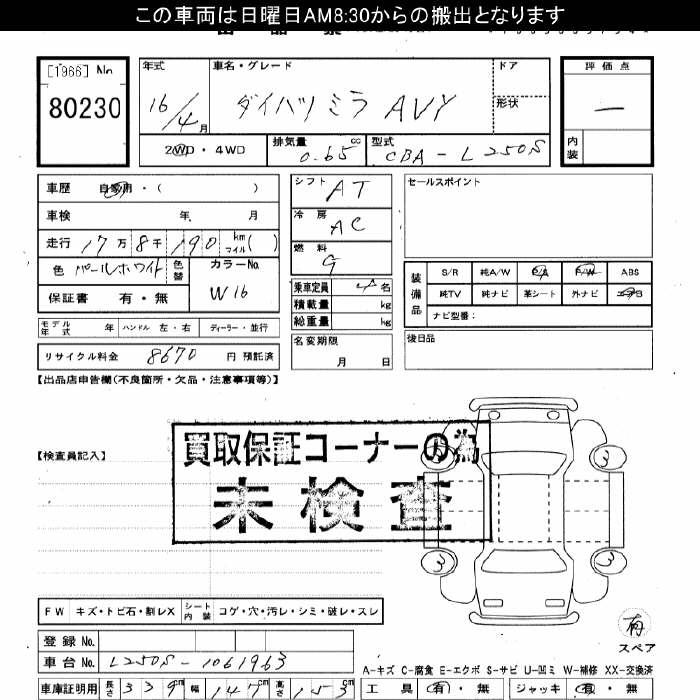 この車両は日曜日AM8:30からの搬出となります
[1966] No
80230
年式 車名・グレード ドア 評価点
16/4月 ダイハツミラ AVY 形状 —
2WD・4WD 排気量 0.65 cc 型式 CBA-L250S 内装
車歴 自家用・( )
車検 年 月
走行 17万8千190 km マイル( )
色 パールホワイト 色替 カラーNo. W16
保証書 有・無
モデル年式 年 ハンドル 左・右 ディーラー・並行
リサイクル料金 8670 円 預託済
シフト AT
冷房 AC
燃料 G
乗車定員 4名
積載量 kg
総重量 kg
名変期限 月 日
セールスポイント
装備品 S/R 純A/W P/S P/W ABS
純TV 純ナビ 革シート 外ナビ エアB
ナビ型番:
後日品
【出品店申告欄(不良箇所・欠品・注意事項等)】
【検査員記入】
買取保証コーナーの為
未検査
3 3
3 3
FW キズ・トビ石・割レX シート内装 コゲ・穴・汚レ・シミ・破レ・スレ
有
スペア
登録 No.
車台 No. L250S-1061963
車庫証明用 長さ 339cm 幅 147cm 高さ 153cm
A-キズ C-腐食 E-エクボ S-サビ U-凹ミ W-補修 XX-交換済
工具 有・無 ジャッキ 有・無